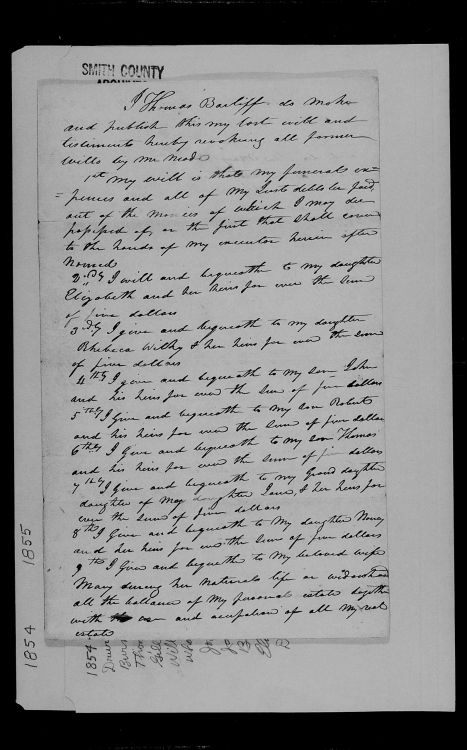 SMITH COUNTY
I Thomas Bartiff do make
and publish this my last will and
testiments hereby revoking all former
wills by me made
1st My will is that my funeral ex-
=pences and all of my Just debts be paid,
out of the monies of which I may die
possessed of, or the first that shall come
to the hands of my executor herein after
Named
2ndly I will and bequeathe to my daughter
Elizabeth and her heirs for ever the Sum
of five dollars
3rdly I give and bequeath to my daughter
Rhebeca Wilky & her heirs for ever the sum
of five dollars
4thly I give and bequeath to my Son John
and his heirs for ever the Sum of five dollars
5thly I Give and bequeath to my Son Robert
and his heirs for ever the Sum of five dollars
6thly I Give and bequeath to my Son Thomas
and his heirs for ever the Sum of five dollars
7thly I give and bequeath to my Grand daughter
daughter of my daughter Jane, & her heirs for
ever the Sum of five dollars
8th I Give and bequeath to My daughter Nancy
and her heirs for ever the Sum of five dollars
9th I Give and bequeath to My beloved wife
Mary during her natural life or widowhood
all the ballance of My personal estate together
with the use and occupation of all My real
estate
1854 1855
1854